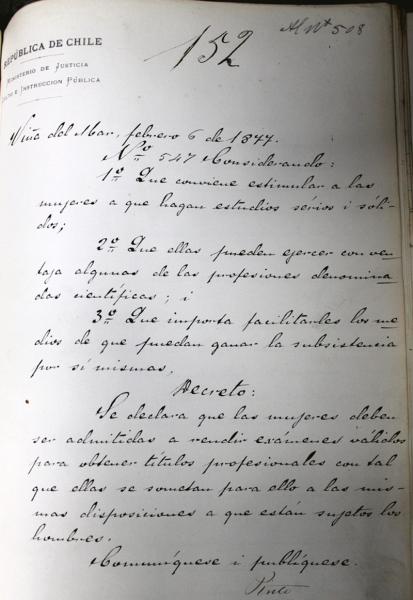 Al Nº 508
152
REPÚBLICA DE CHILE
MINISTERIO DE JUSTICIA
CULTO E INSTRUCCION PÚBLICA
Viña del Mar, febrero 6 de 1877.
Nº 547 Considerando:
1º Que conviene estimular a las
mujeres a que hagan estudios sérios i sóli-
dos;
2º Que ellas pueden ejercer con ven-
taja algunas de las profesiones denomina-
das científicas; i
3º Que importa facilitarles los me-
dios de que puedan ganar la subsistencia
por sí mismas,
Decreto:
Se declara que las mujeres deben
ser admitidas a rendir exámenes válidos
para obtener títulos profesionales con tal
que ellas se sometan para ello a las mis-
mas disposiciones a que están sujetos los
hombres.
Comuníquese i publíquese.
Pinto